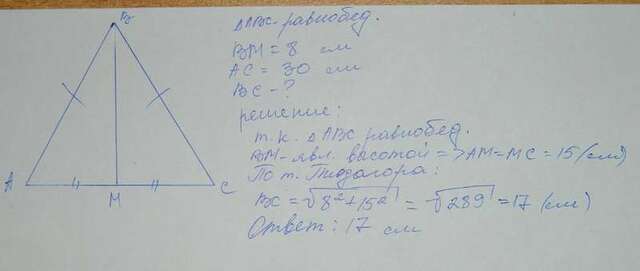 B
A
M
C
△ABC-равнобед.
BM = 8 см
AC = 30 см
BC - ?
решение:
т.к. △ABC равнобед.
BM-явл. высотой => AM=MC=15(см)
По т. Пифагора:
BC = √8²+15² = √289 = 17 (см)
Ответ: 17 см